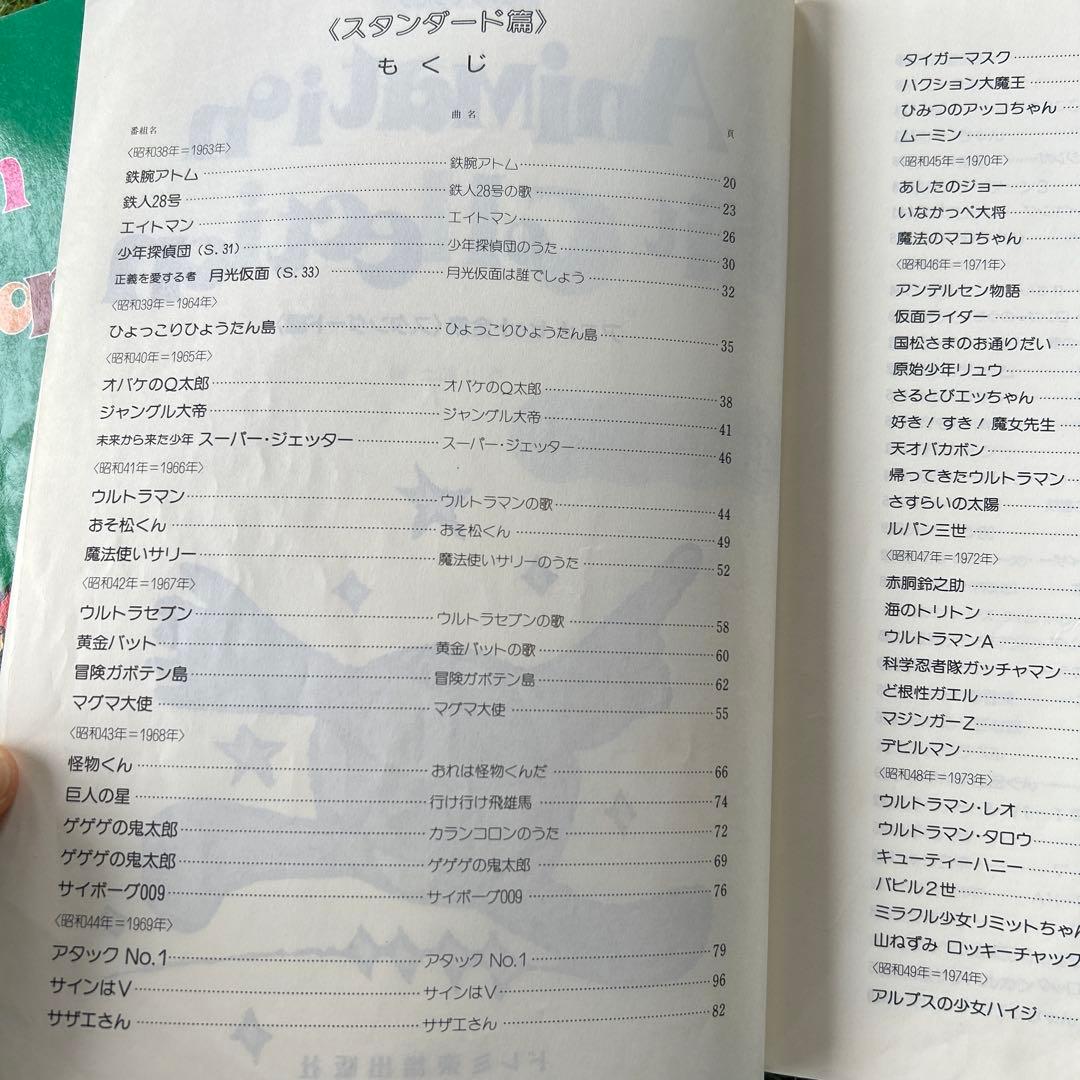 〈スタンダード篇〉
もくじ
番組名 曲名 頁
〈昭和38年=1963年〉
鉄腕アトム 鉄腕アトム 20
鉄人28号 鉄人28号の歌 23
エイトマン エイトマン 26
少年探偵団(S.31) 少年探偵団のうた 30
正義を愛する者 月光仮面(S.33) 月光仮面は誰でしょう 32
〈昭和39年=1964年〉
ひょっこりひょうたん島 ひょっこりひょうたん島 35
〈昭和40年=1965年〉
オバケのQ太郎 オバケのQ太郎 38
ジャングル大帝 ジャングル大帝 41
未来から来た少年 スーパー・ジェッター スーパー・ジェッター 46
〈昭和41年=1966年〉
ウルトラマン ウルトラマンの歌 44
おそ松くん おそ松くん 49
魔法使いサリー 魔法使いサリーのうた 52
〈昭和42年=1967年〉
ウルトラセブン ウルトラセブンの歌 58
黄金バット 黄金バットの歌 60
冒険ガボテン島 冒険ガボテン島 62
マグマ大使 マグマ大使 55
〈昭和43年=1968年〉
怪物くん おれは怪物くんだ 66
巨人の星 行け行け飛雄馬 74
ゲゲゲの鬼太郎 カランコロンのうた 72
ゲゲゲの鬼太郎 ゲゲゲの鬼太郎 69
サイボーグ009 サイボーグ009 76
〈昭和44年=1969年〉
アタックNo.1 アタックNo.1 79
サインはV サインはV 96
サザエさん サザエさん 82
タイガーマスク
ハクション大魔王
ひみつのアッコちゃん
ムーミン
〈昭和45年=1970年〉
あしたのジョー
いなかっぺ大将
魔法のマコちゃん
〈昭和46年=1971年〉
アンデルセン物語
仮面ライダー
国松さまのお通りだい
原始少年リュウ
さるとびエッちゃん
好き!すき!魔女先生
天才バカボン
帰ってきたウルトラマン
さすらいの太陽
ルパン三世
〈昭和47年=1972年〉
赤胴鈴之助
海のトリトン
ウルトラマンA
科学忍者隊ガッチャマン
ど根性ガエル
マジンガーZ
デビルマン
〈昭和48年=1973年〉
ウルトラマン・レオ
ウルトラマン・タロウ
キューティーハニー
バビル2世
ミラクル少女リミットちゃん
山ねずみ ロッキーチャック
〈昭和49年=1974年〉
アルプスの少女ハイジ